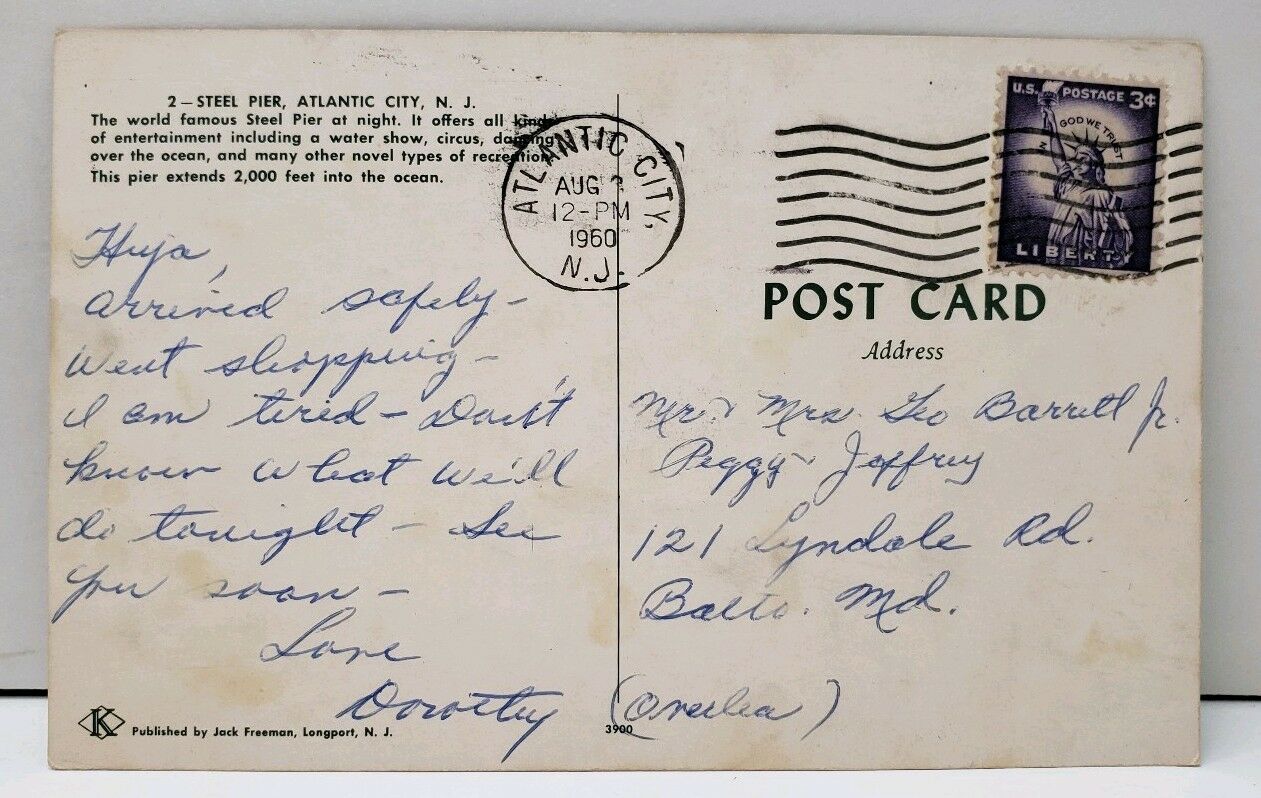 2—STEEL PIER, ATLANTIC CITY, N. J.
The world famous Steel Pier at night. It offers all kinds
of entertainment including a water show, circus, dancing
over the ocean, and many other novel types of recreation.
This pier extends 2,000 feet into the ocean.
Hiya,
arrived safely –
Went shopping –
I am tired – Don't
know what we'll
do tonight – See
you soon –
Love
Dorothy
K
Published by Jack Freeman, Longport, N. J.
ATLANTIC CITY,
AUG
12-PM
1960
N.J.
U.S. POSTAGE 3¢
IN GOD WE TRUST
LIBERTY
POST CARD
Address
Mr & Mrs. Geo Barrett Jr.
Peggy & Jeffrey
121 Lyndale Rd.
Balto. Md.
(Overlea)
3900